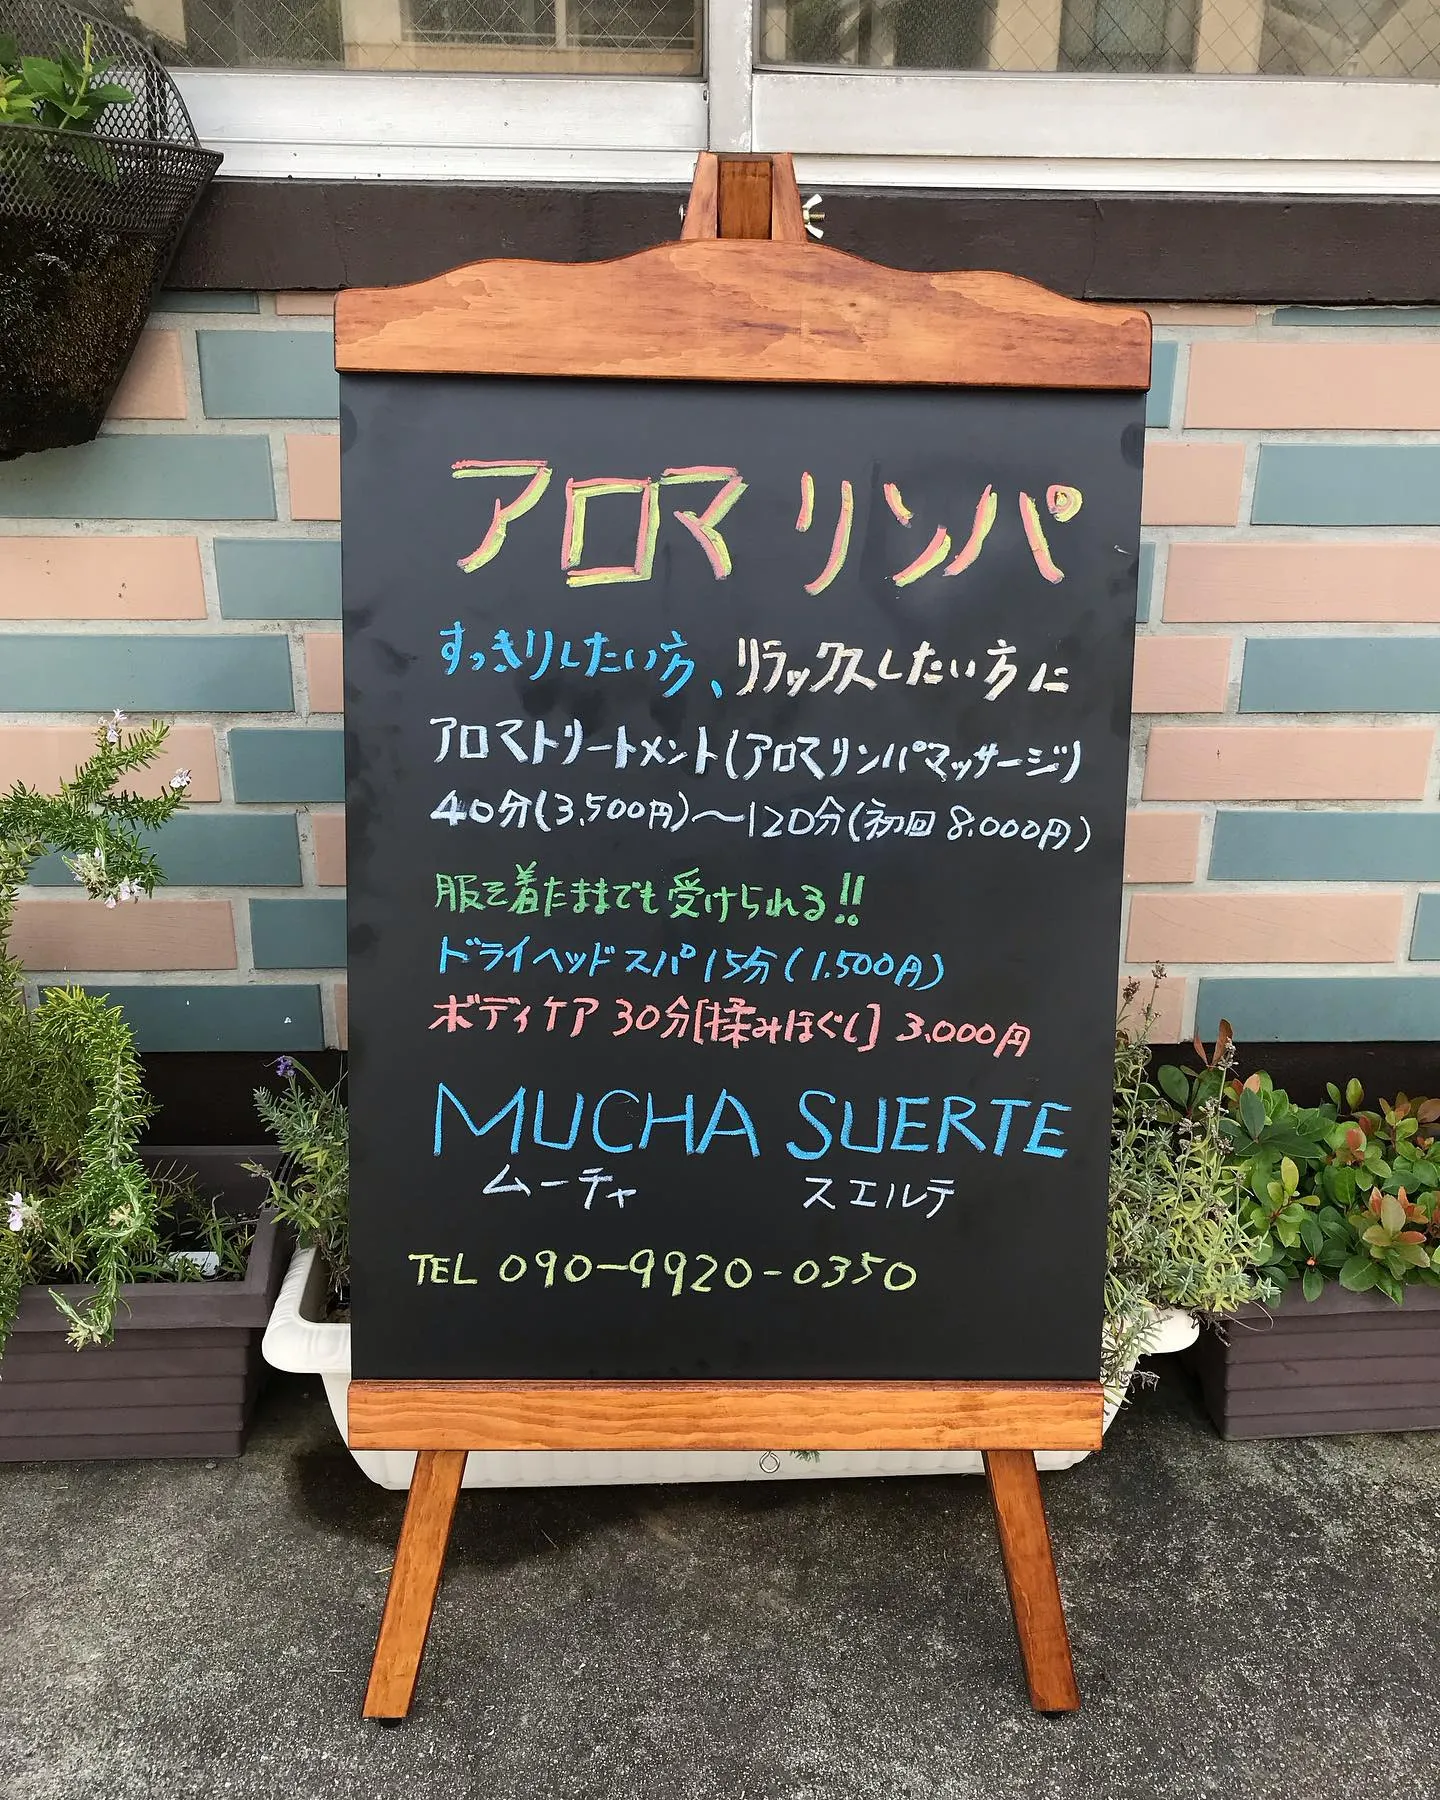 アロマリンパ
すっきりしたい方、リラックスしたい方に
アロマトリートメント(アロマリンパマッサージ)
40分(3,500円)～120分(初回 8.000円)
服を着たままでも受けられる!!
ドライヘッドスパ 15分(1.500円)
ボディケア 30分[揉みほぐし] 3.000円
MUCHA SUERTE
ムーチャ スエルテ
TEL 090-9920-0350